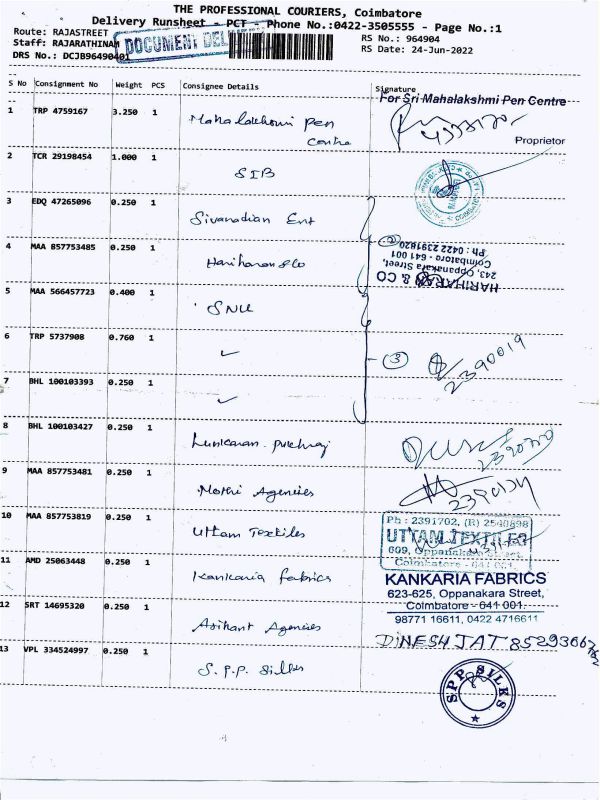 THE PROFESSIONAL COURIERS, Coimbatore
Delivery Runsheet - PCT - Phone No.:0422-3505555 - Page No.:1
Route: RAJASTREET
RS No.: 964904
Staff: RAJARATHINAM
DOCUMENT
RS Date: 24-Jun-2022
DRS No.: DCJB96490401
S No Consignment No Weight PCS Consignee Details Signature
For Sri Mahalakshmi Pen Centre
1 TRP 4759167 3.250 1 Mahalakhmi Pen
Centre
Proprietor
2 TCR 29198454 1.000 1 SIB
3 EDQ 47265096 0.250 1 Sivanadian Ent
4 MAA 857753485 0.250 1 Hariharan & Co
2
HARIHARAN & CO
243, Oppanakara Street,
Coimbatore - 641 001
Ph : 0422 2391820
5 MAA 566457723 0.400 1 SNU
6 TRP 5737908 0.760 1 ✓
3
2390019
7 BHL 100103393 0.250 1 ✓
8 BHL 100103427 0.250 1 Lunkaran
9 MAA 857753481 0.250 1 Mothi Agencies
10 MAA 857753819 0.250 1 Uttam Textiles
Ph : 2391702, (R) 2540898
UTTAM TEXTILES
609, Oppanakara Street,
Coimbatore - 641 001.
11 AMD 25063448 0.250 1 Kankaria fabrics
KANKARIA FABRICS
623-625, Oppanakara Street,
Coimbatore - 641 001.
98771 16611, 0422 4716611
12 SRT 14695320 0.250 1 Arihant Agencies
DINESH JAT
13 VPL 334524997 0.250 1 S.P.P. Silks
SPP SILKS